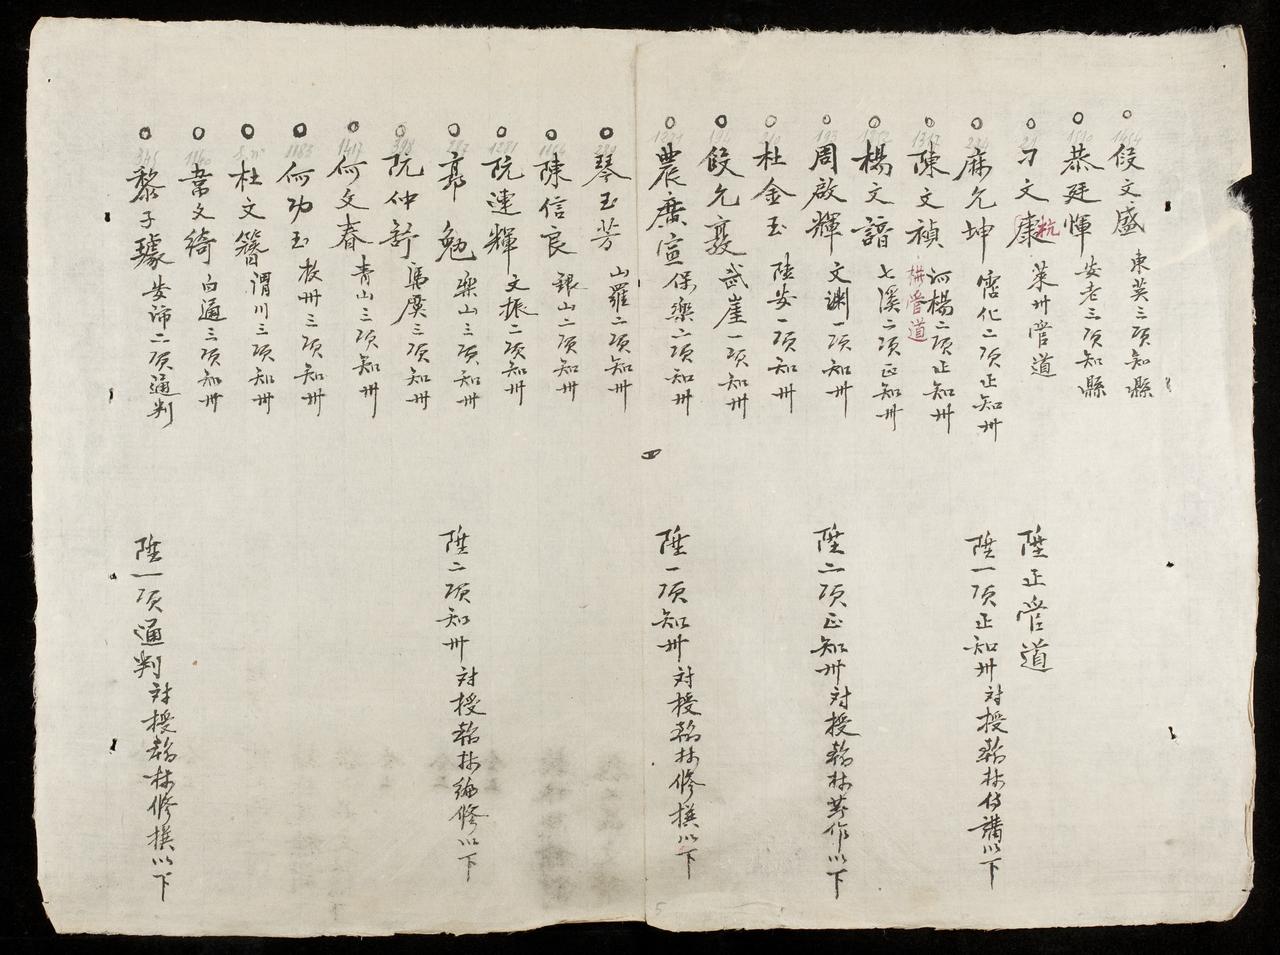 文盛 東英三項知縣
恭廷惲 安老三項知縣
刁文康 萊州管道 陞正管道
杭
麻允坤 霑化二項正知州 陞一項正知州対授翰林侍講以下
陳文禎 河楊二項正知州
管道
楊文諳 七溪二項正知州
周啟輝 文渊一項知州 陞二項正知州対授翰林著作以下
杜金玉 陸安一項知州
允 武崖一項知州
農廣宣 保樂二項知州 陞一項知州対授翰林修撰以下
琴玉芳 山羅二項知州
四
陳信良 銀山二項知州
阮連輝 文振二項知州
郭勉 樂山三項知州 陞二項知州対授翰林編修以下
阮仲舒 三項知州
何文春 青山三項知州
何功玉 枚州三項知州
杜文簪 渭川三項知州
韋文綺 白通三項知州
黎子璩 安沛二項通判 陞一項通判対授翰林修撰以下
5